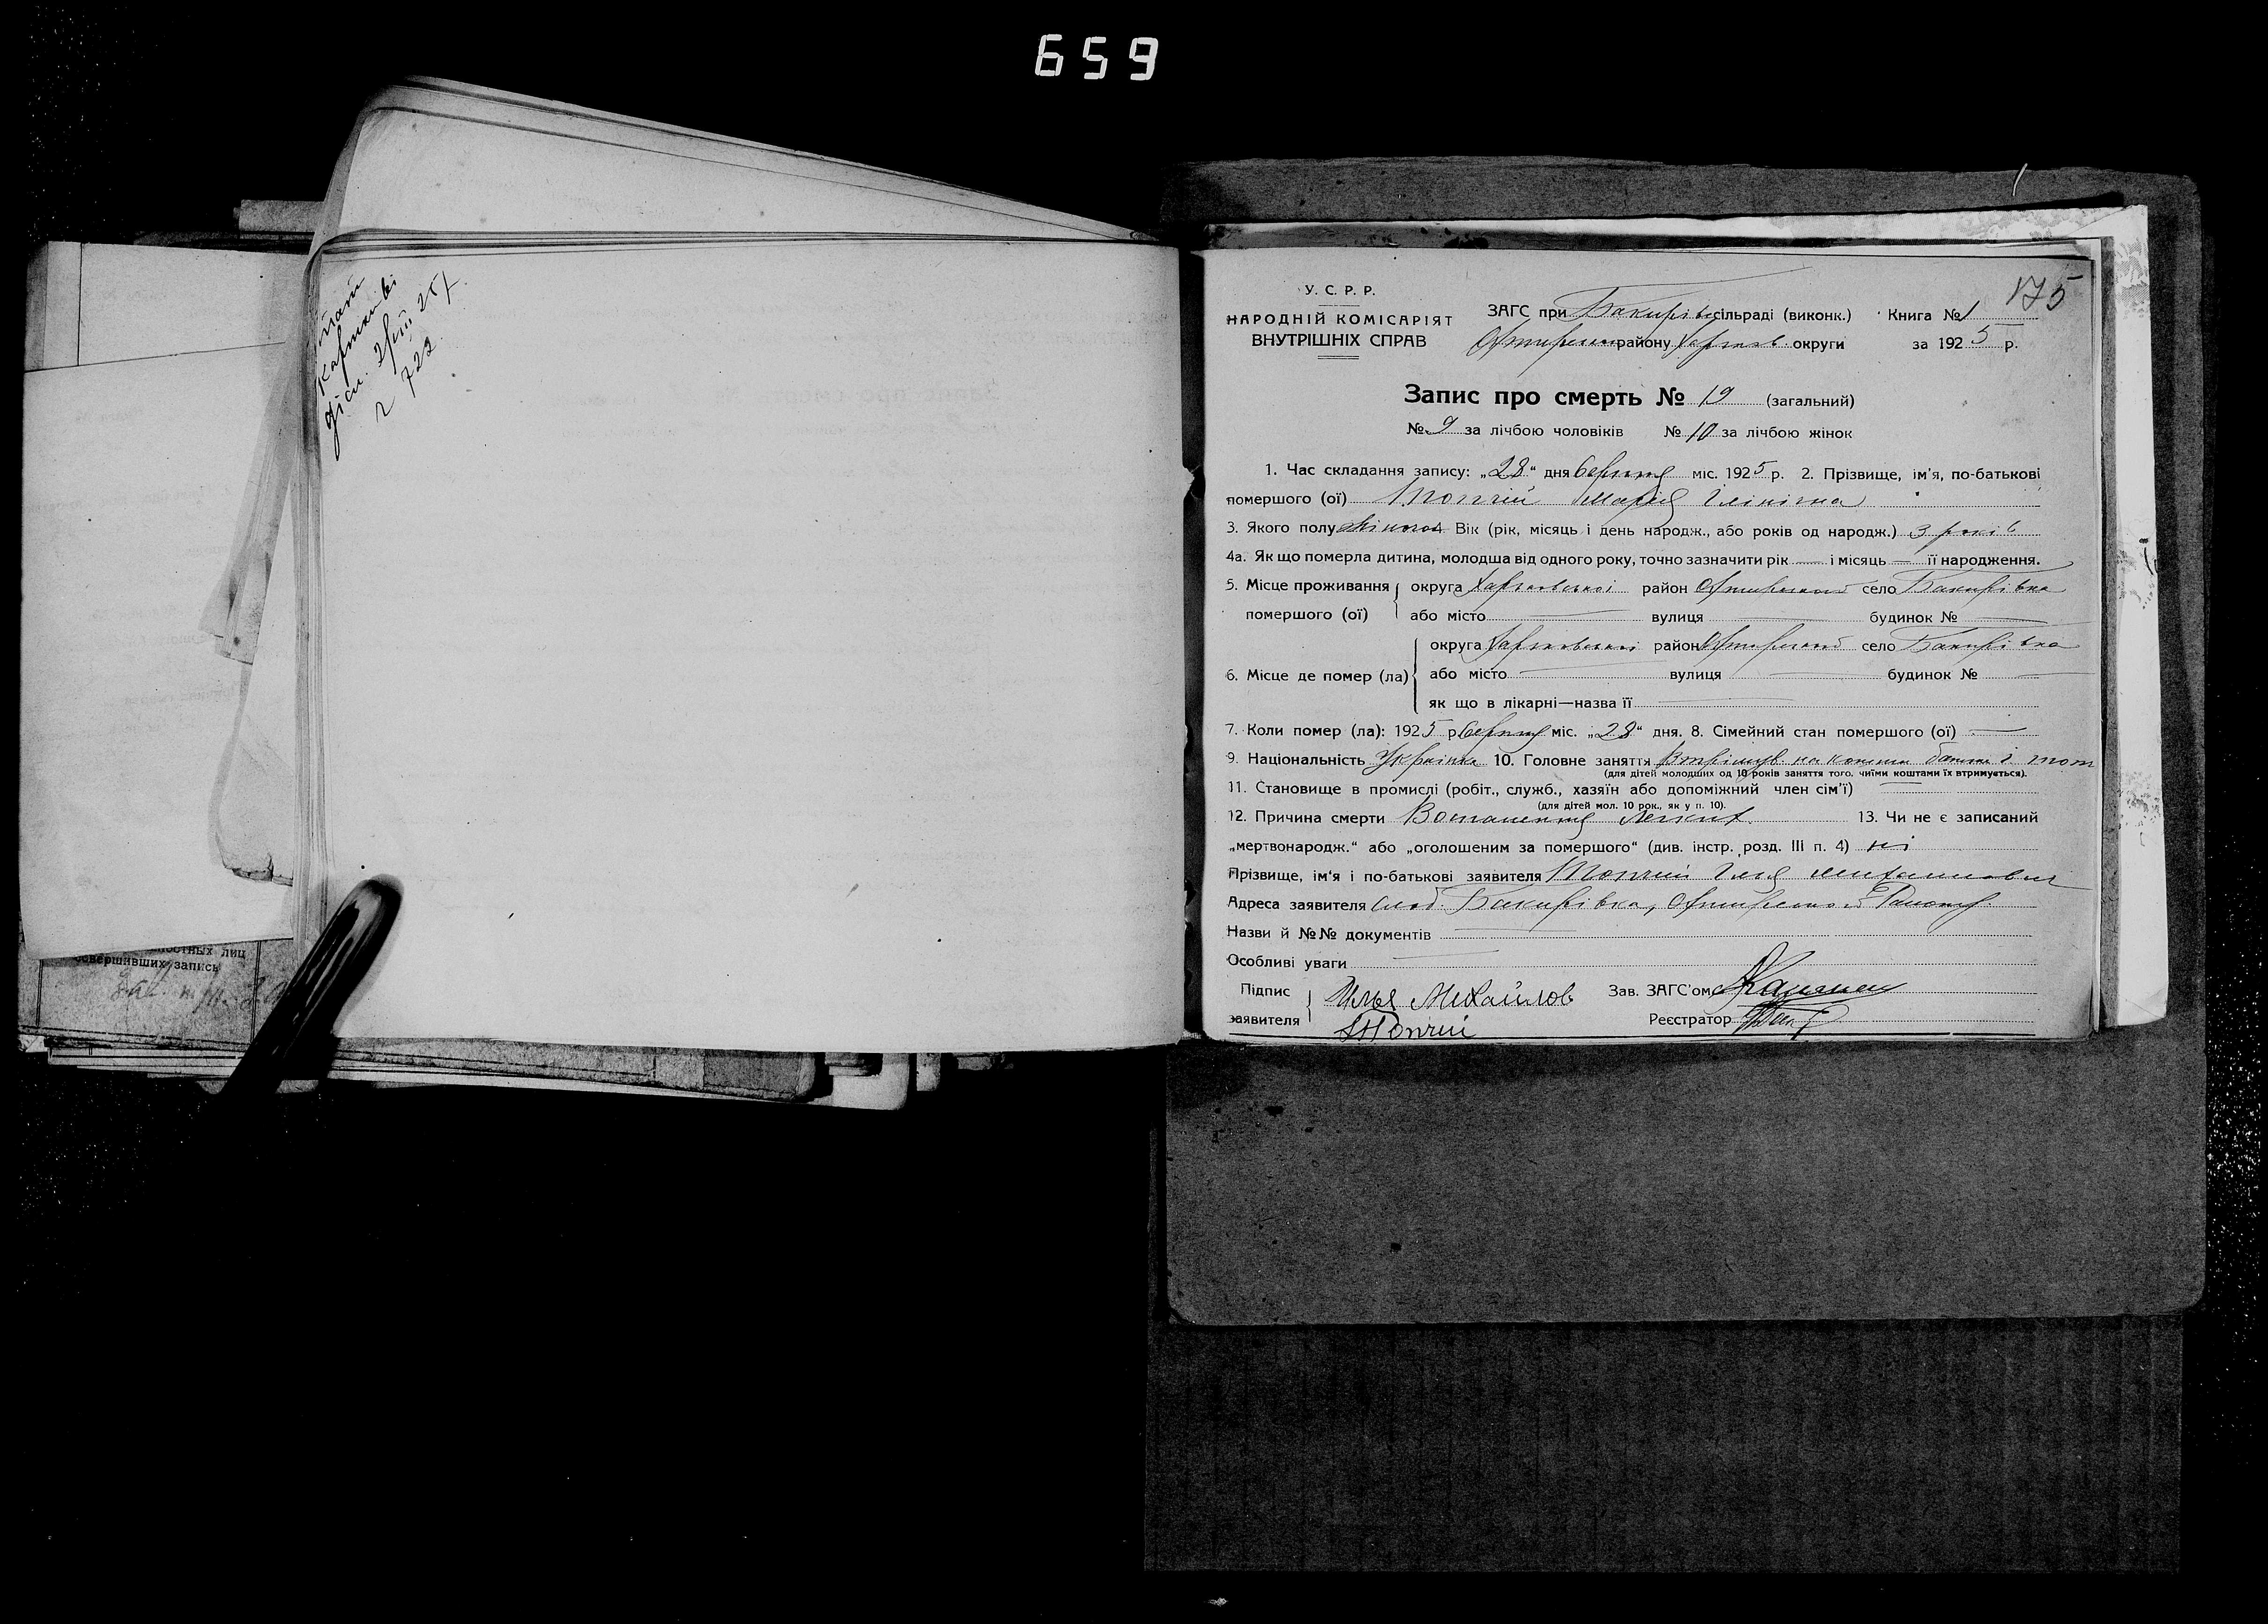 659
№ 722
лостных лиц
совершивших запись
175
У. С. Р. Р.
НАРОДНІЙ КОМІСАРІЯТ
ВНУТРІШНІХ СПРАВ
ЗАГС при Бакирівс сільраді (виконк.) Книга № 1
району Харьков округи за 1925 р.
Запис про смерть № 19 (загальний)
№ 9 за лічбою чоловіків № 10 за лічбою жінок
1. Час складання запису: „28“ дня березня міс. 1925 р. 2. Прізвище, ім'я, по-батькові
помершого (ої) Топчій Марія Ілінічна
3. Якого полу жіночої 4. Вік (рік, місяць і день народж., або років од народж.) 3 років
4а. Як що померла дитина, молодша від одного року, точно зазначити рік — і місяць — її народження.
5. Місце проживання округа Харьковської район Охтирського село Бакирівка
помершого (ої) або місто — вулиця — будинок № —
округа Харьковської район Охтирської село Бакирівка
6. Місце де помер (ла) або місто — вулиця — будинок № —
як що в лікарні—назва її —
7. Коли помер (ла): 1925 р. березня міс. „28“ дня. 8. Сімейний стан помершого (ої) —
9. Національність Українка 10. Головне заняття на кошти батька і
(для дітей молодших од 10 років заняття того, чиїми коштами їх втримується).
11. Становище в промислі (робіт., служб., хазяїн або допоміжний член сім'ї) —
(для дітей мол. 10 рок., як у п. 10).
12. Причина смерти легких 13. Чи не є записаний
„мертвонародж.“ або „оголошеним за помершого“ (див. інстр. розд. III п. 4) ні
Прізвище, ім'я і по-батькові заявителя Топчій Ілля Михаилович
Адреса заявителя слоб. Бакирівка, Охтирського Району
Назви й №№ документів —
Особливі уваги —
Підпис Илья Михайлов Зав. ЗАГС'ом
заявителя Топчий Реєстратор